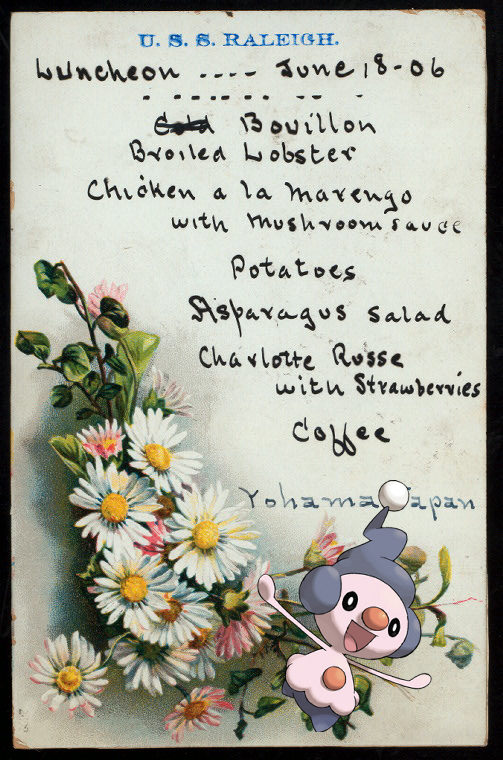 U. S. S. RALEIGH.
Luncheon .... June 18-06
Cold Bouillon
Broiled Lobster
Chicken a la Marengo
with Mushroom sauce
Potatoes
Asparagus salad
Charlotte Russe
with Strawberries
Coffee
Yohama apan